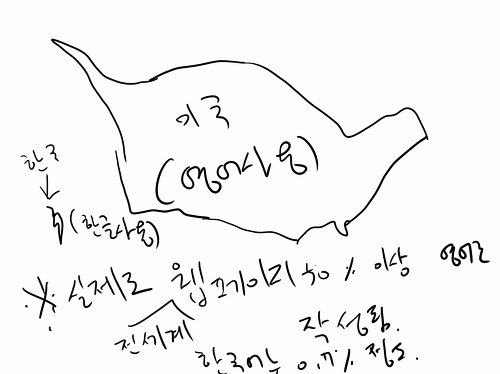 미국
(영어사용)
한국
(한글사용)
※ 실제로 웹 이상 영어로
전세계 작성됨.
한국어는 정도.